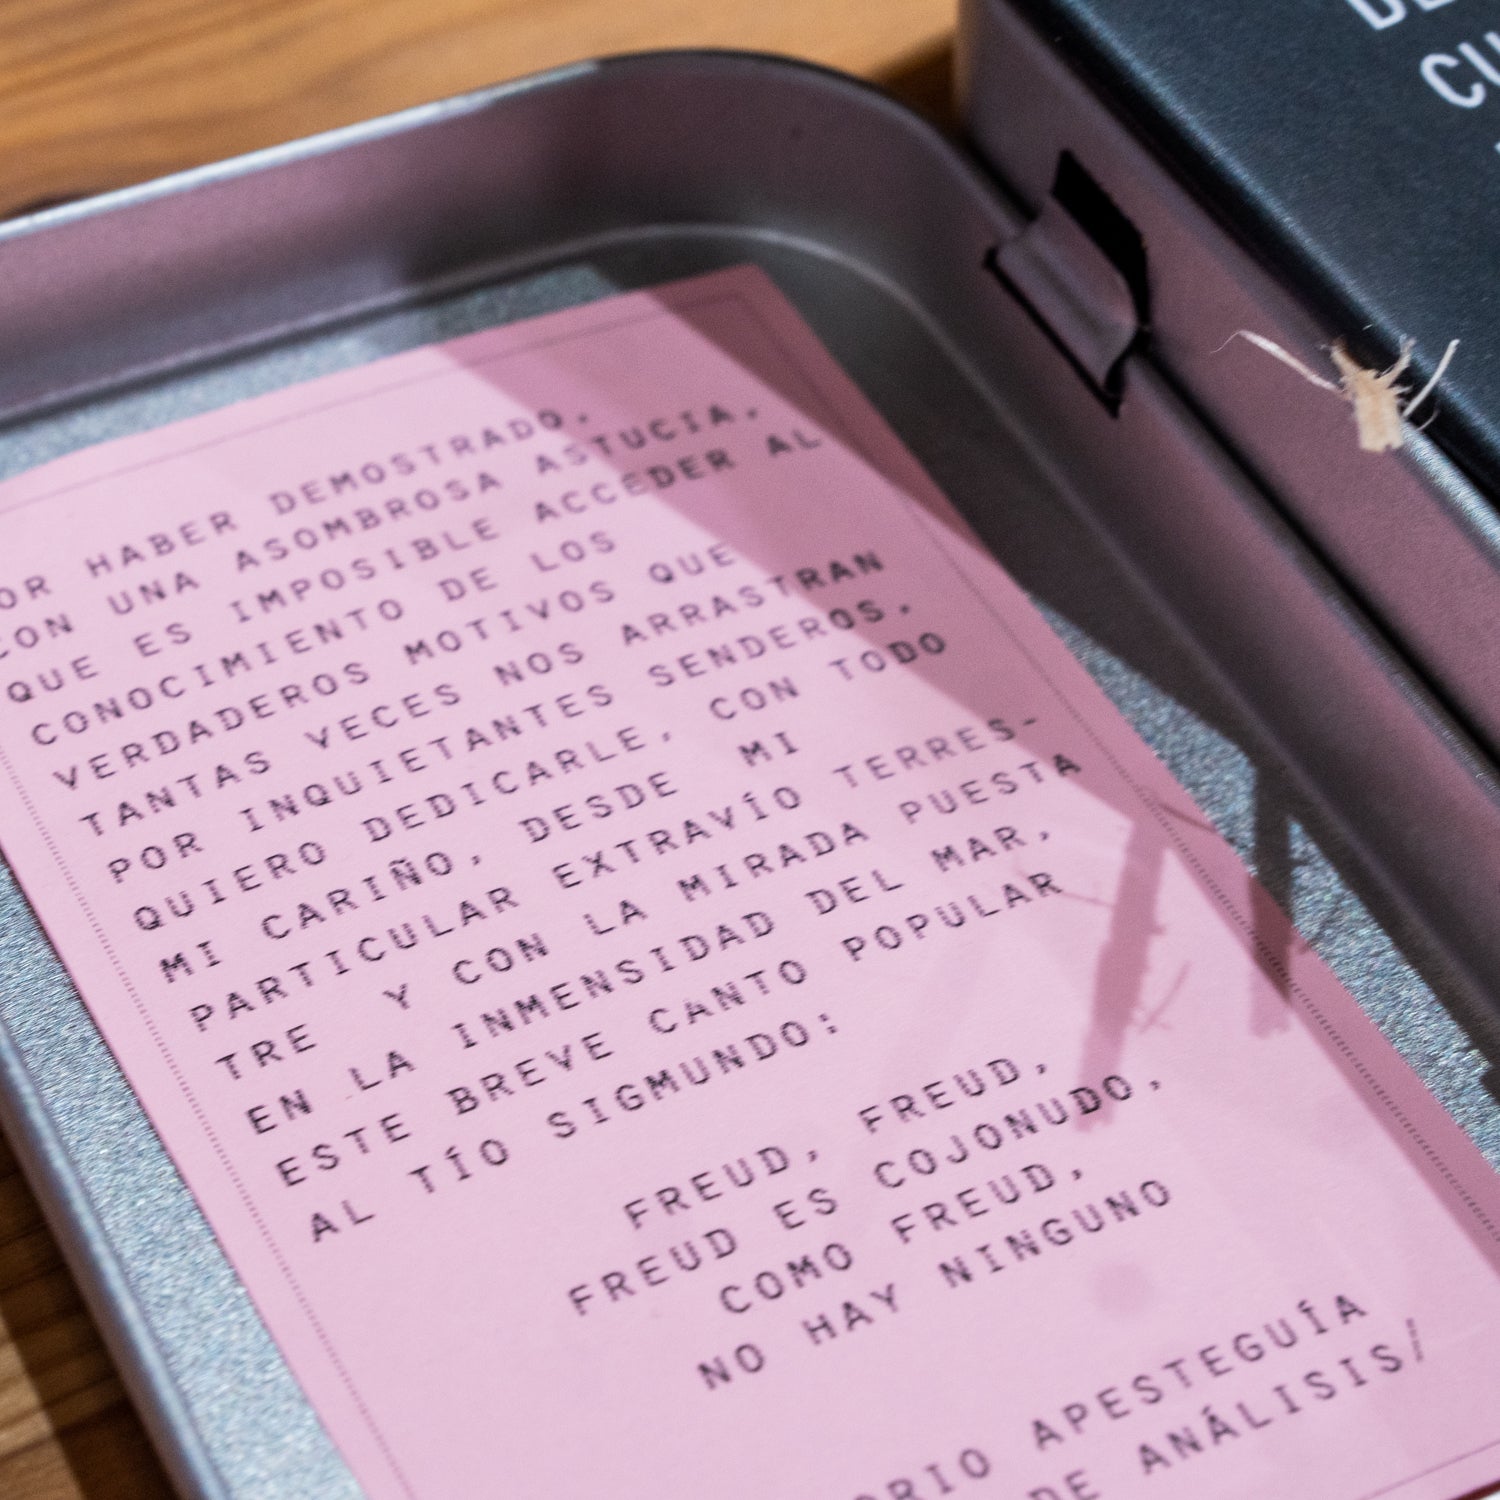 OR HABER DEMOSTRADO,
CON UNA ASOMBROSA ASTUCIA,
QUE ES IMPOSIBLE ACCEDER AL
CONOCIMIENTO DE LOS
VERDADEROS MOTIVOS QUE
TANTAS VECES NOS ARRASTRAN
POR INQUIETANTES SENDEROS,
QUIERO DEDICARLE, CON TODO
MI CARIÑO, DESDE MI
PARTICULAR EXTRAVÍO TERRES-
TRE Y CON LA MIRADA PUESTA
EN LA INMENSIDAD DEL MAR,
ESTE BREVE CANTO POPULAR
AL TÍO SIGMUNDO:
FREUD, FREUD,
FREUD ES COJONUDO,
COMO FREUD,
NO HAY NINGUNO
ORIO APESTEGUÍA
DE ANÁLISIS,
CU